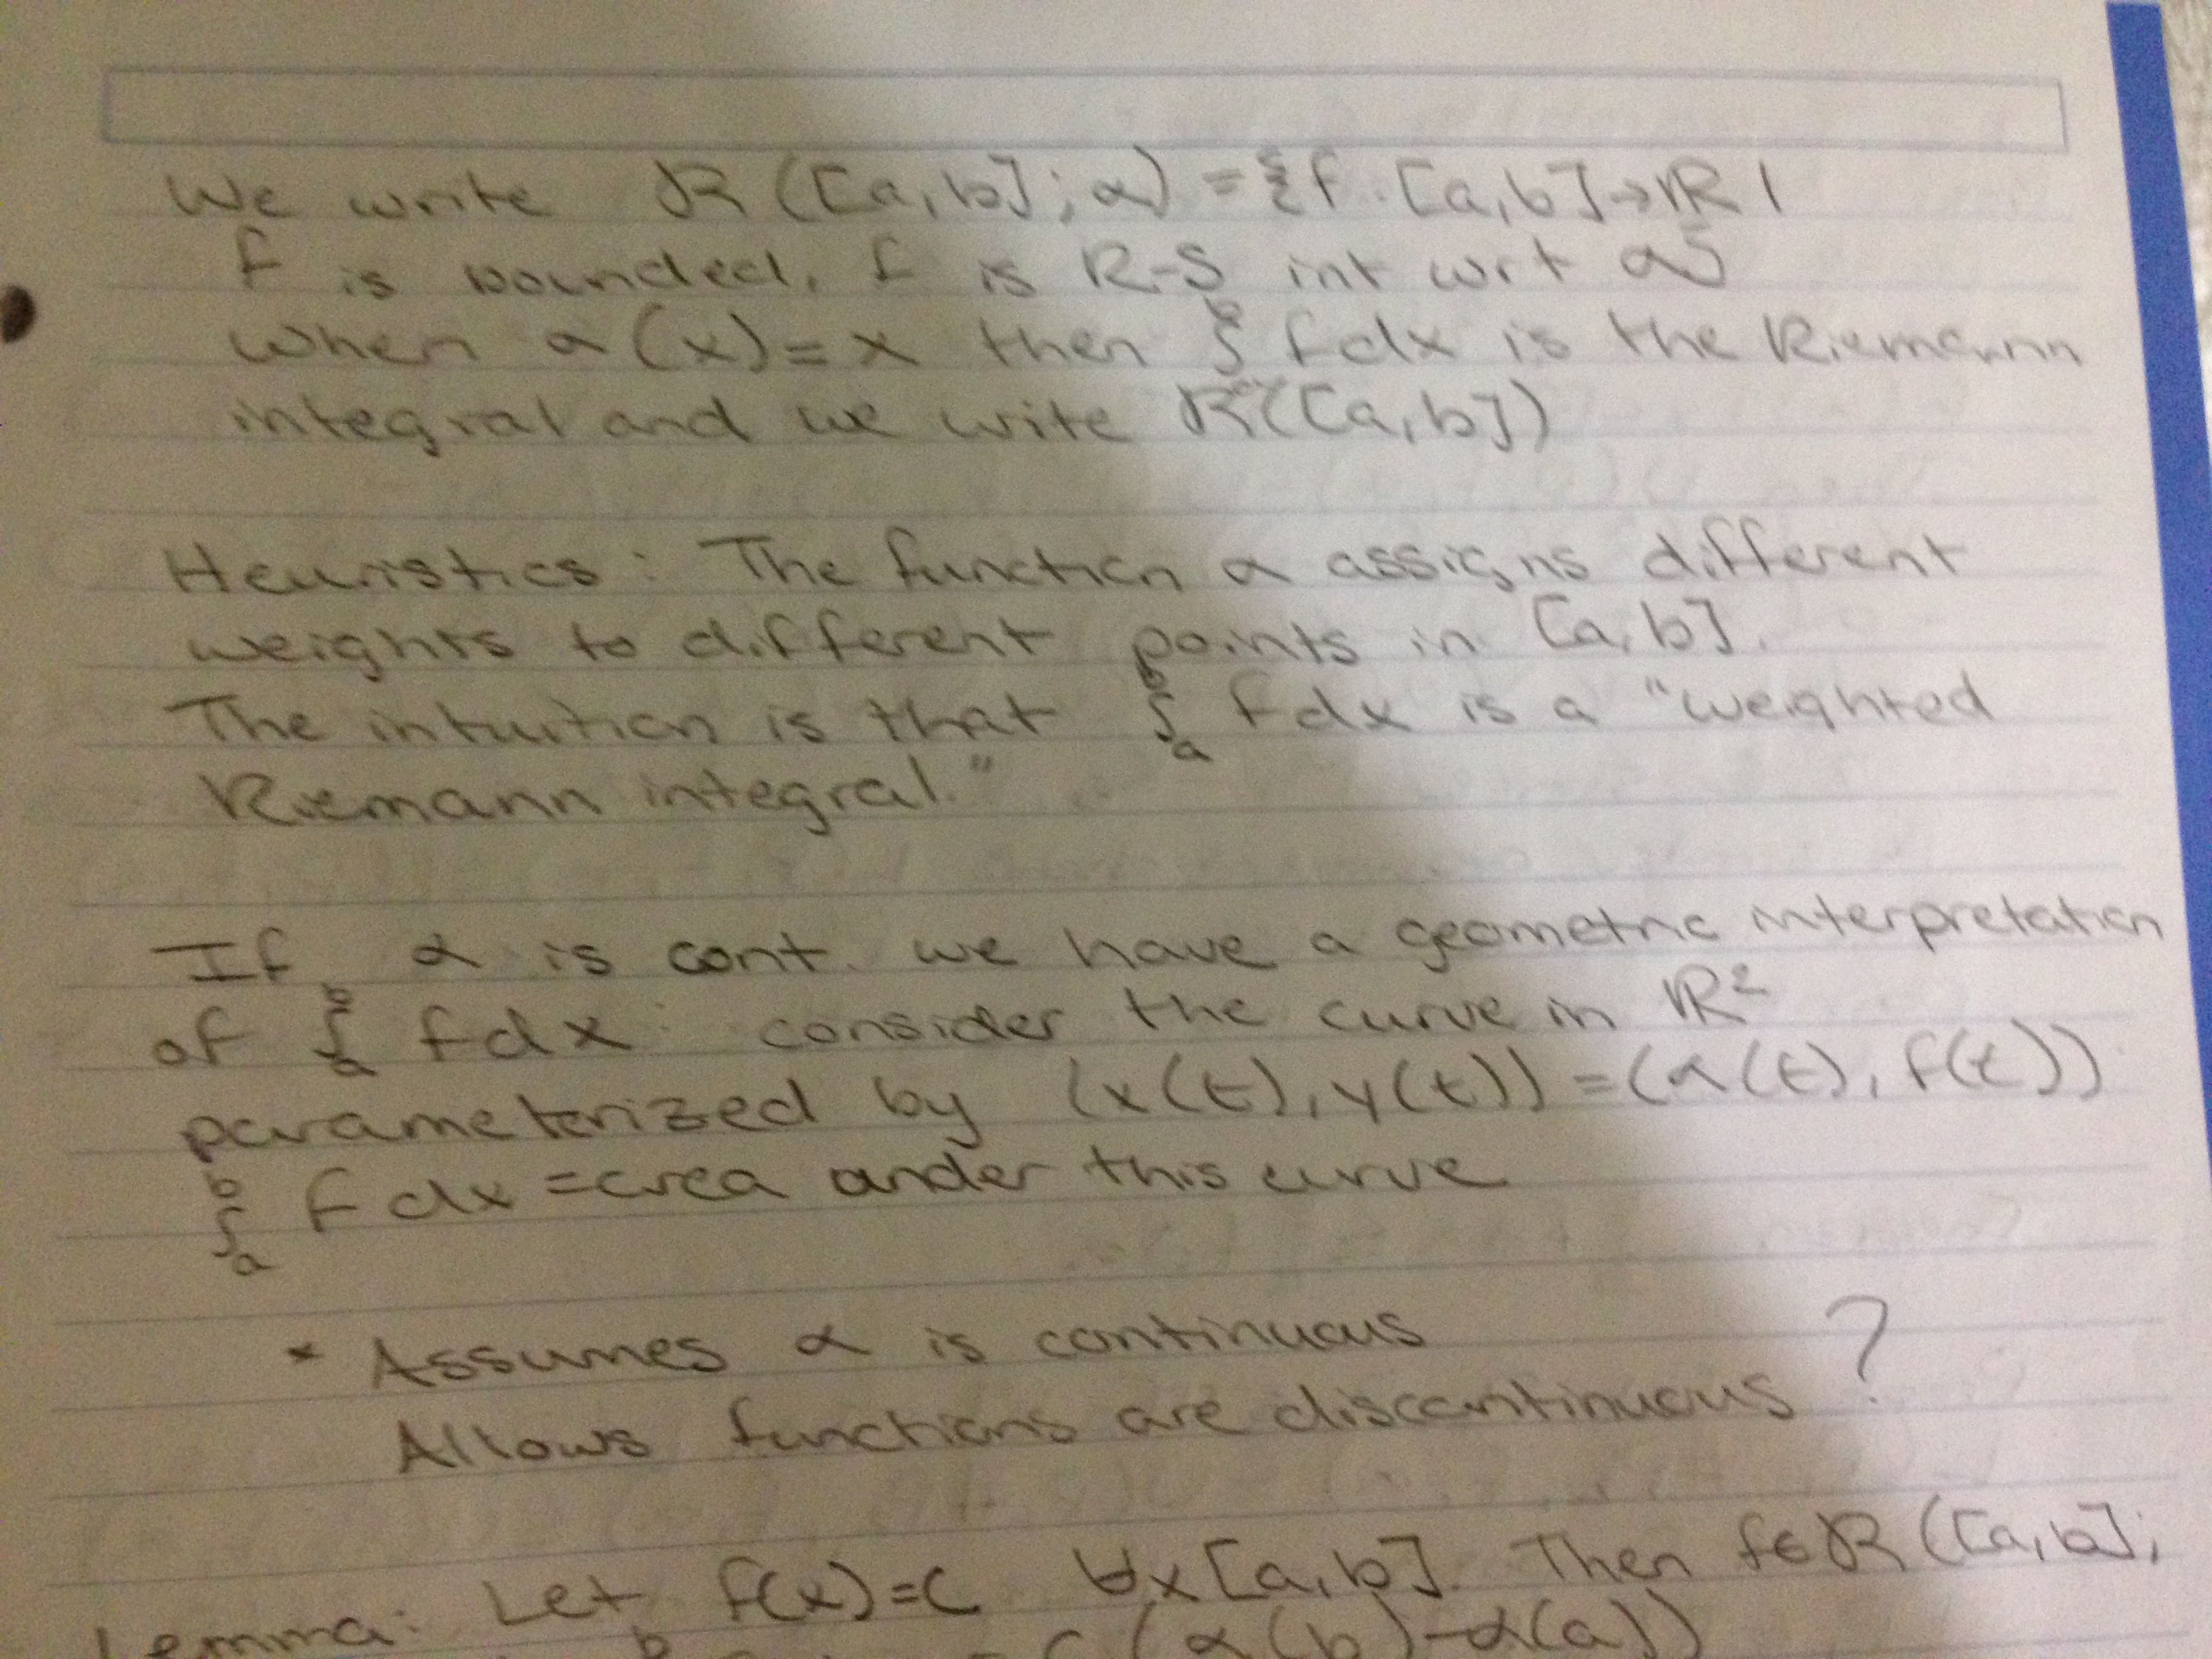 We write R([a,b];α) = {f: [a,b]→ℝ |
f is bounded, f is R-S int wrt α}
When α(x)=x then ∫ₐᵇ fdx is the Riemann
integral and we write R([a,b])
Heuristics: The function α assigns different
weights to different points in [a,b].
The intuition is that ∫ₐᵇ fdα is a "weighted
Riemann integral."
If α is cont. we have a geometric interpretation
of ∫ₐᵇ fdα: consider the curve in ℝ²
parameterized by (x(t),y(t))=(α(t),f(t))
∫ₐᵇ fdα = area under this curve
* Assumes α is continuous
Allows functions are discontinuous ?
Lemma: Let f(x)=C ∀x[a,b]. Then f∈R([a,b];
C(α(b)-α(a))